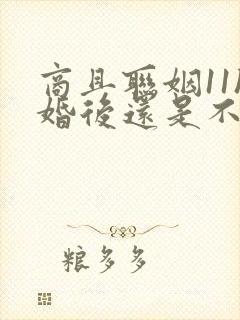 商且聯姻11
婚後還是不
粮多多